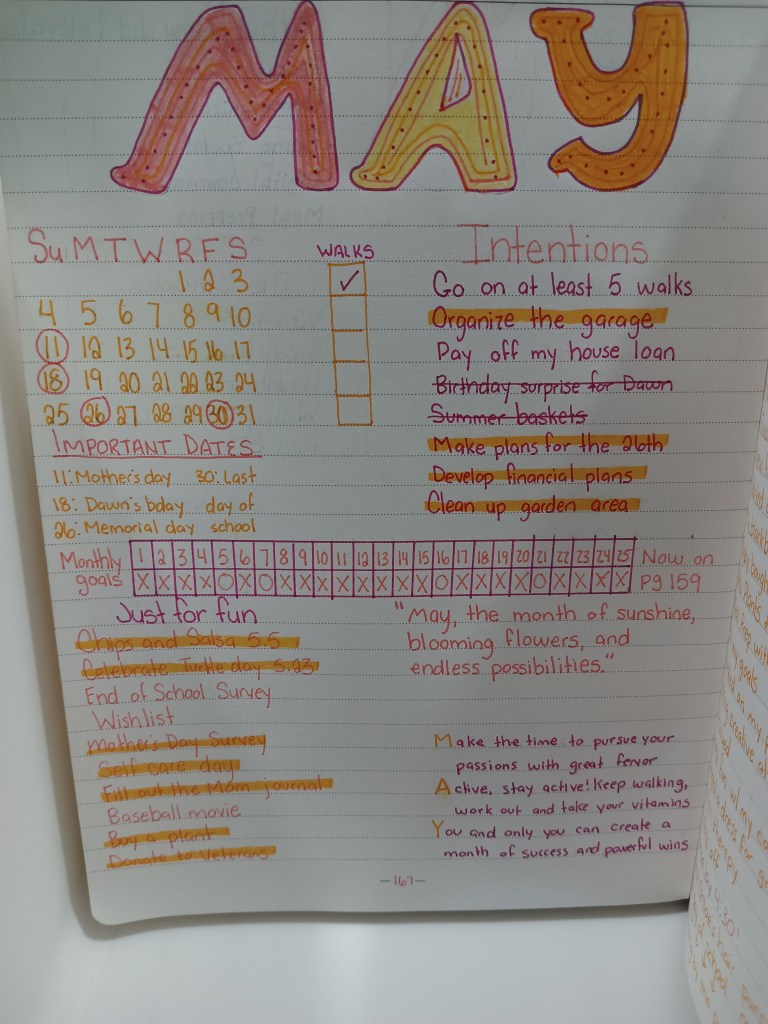 MAY
Su M T W R F S
1 2 3
4 5 6 7 8 9 10
11 12 13 14 15 16 17
18 19 20 21 22 23 24
25 26 27 28 29 30 31
WALKS
✓
Intentions
Go on at least 5 walks
Organize the garage
Pay off my house loan
Birthday surprise for Dawn
Summer baskets
Make plans for the 26th
Develop financial plans
Clean up garden area
IMPORTANT DATES
11: Mother's day 30: Last
18: Dawn's bday day of
26: Memorial day school
Monthly 1 2 3 4 5 6 7 8 9 10 11 12 13 14 15 16 17 18 19 20 21 22 23 24 25 Now on
goals X X X X O X O X X X X X X X X O X X X X O X X X X Pg 159
Just for fun
Chips and Salsa 5.5
Celebrate Turtle day 5.23
End of School Survey
Wishlist
Mother's Day Survey
Self care day
Fill out the Mom journal
Baseball movie
Buy a plant
Donate to Veterans
"May, the month of sunshine,
blooming flowers, and
endless possibilities."
Make the time to pursue your
passions with great fervor
Active, stay active! Keep walking,
work out and take your vitamins
You and only you can create a
month of success and powerful wins
-167-